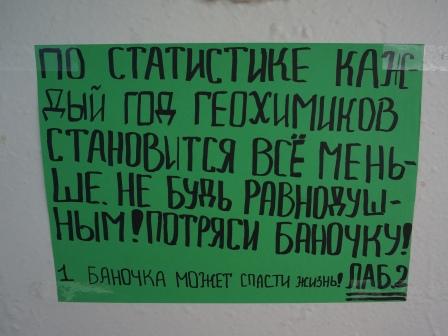 ПО СТАТИСТИКЕ КАЖ-
ДЫЙ ГОД ГЕОХИМИКОВ
СТАНОВИТСЯ ВСЁ МЕНЬ-
ШЕ. НЕ БУДЬ РАВНОДУШ-
НЫМ! ПОТРЯСИ БАНОЧКУ!
1 БАНОЧКА МОЖЕТ СПАСТИ ЖИЗНЬ! ЛАБ.2